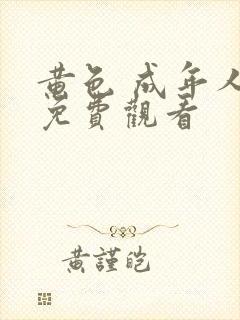 黄色 成年人
免費觀看
黃謹皑